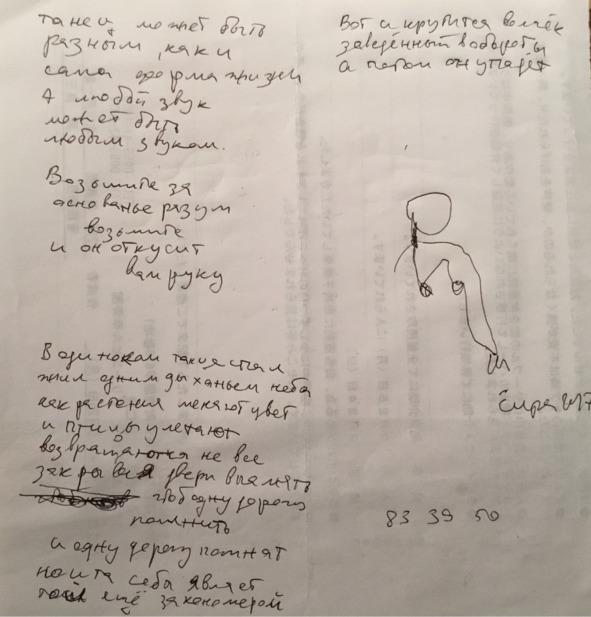 танец может быть
разным, как и
сама форма жизни
А любой звук
может быть
любым звуком.
Возьмите за
основанье разум
возьмите
и он откусит
вам руку
В одиноком
жил одним дыханьем неба
как растения меняют цвет
и птицы улетают
возвращаются не все
закрывая двери в память
чтоб одну дорогу
помнить
и одну дорогу помнят
себя являет
ещё закономерой
Вот и крутится волчёк
заведённый в обороты
а потом он упадёт
83 39 50